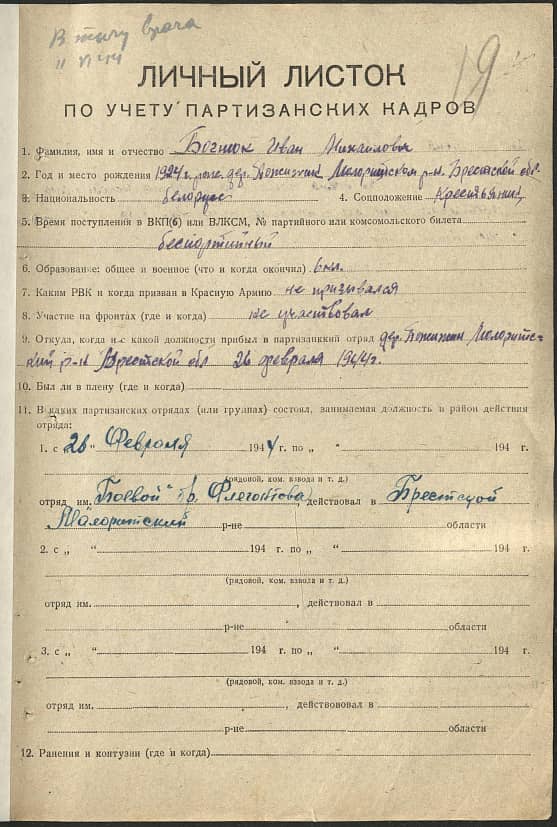 В тылу врага
19
ЛИЧНЫЙ ЛИСТОК
ПО УЧЕТУ ПАРТИЗАНСКИХ КАДРОВ
1. Фамилия, имя и отчество Иван Михайлович
2. Год и место рождения 1924 г. дер. Малоритского р-н. Брестской обл.
3. Национальность белорус 4. Соцположение
5. Время поступления в ВКП(б) или ВЛКСМ, № партийного или комсомольского билета
беспартийный
6. Образование: общее и военное (что и когда окончил) 6 кл.
7. Каким РВК и когда призван в Красную Армию не призывался
8. Участие на фронтах (где и когда) не участвовал
9. Откуда, когда и с какой должности прибыл в партизанский отряд дер. Малоритс-
кий р-н Брестской обл 26 февраля 1944 г.
10. Был ли в плену (где и когда)
11. В каких партизанских отрядах (или группах) состоял, занимаемая должность и район действия
отряда:
1. с „26“ Февраля 1944 г. по „ “ 194 г.
(рядовой, ком. взвода и т. д.)
отряд им. „Боевой“ бр. Флегонтова, действовал в Брестской
Малоритский р-не области
2. с „ “ 194 г. по „ “ 194 г.
(рядовой, ком. взвода и т. д.)
отряд им. , действовал в
р-не области
3. с „ “ 194 г. по „ “ 194 г.
(рядовой, ком. взвода и т. д.)
отряд им. , действововал в
р-не области
12. Ранения и контузии (где и когда)